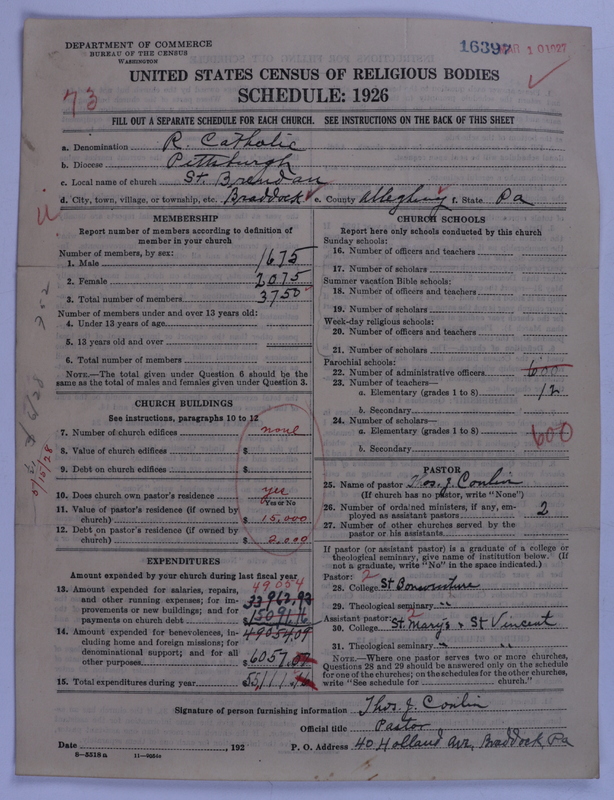 DEPARTMENT OF COMMERCE
BUREAU OF THE CENSUS
WASHINGTON
16397 MAR 10 1927
UNITED STATES CENSUS OF RELIGIOUS BODIES
SCHEDULE: 1926
73
FILL OUT A SEPARATE SCHEDULE FOR EACH CHURCH. SEE INSTRUCTIONS ON THE BACK OF THIS SHEET
a. Denomination R. Catholic
b. Diocese Pittsburgh
c. Local name of church St. Brendan
d. City, town, village, or township, etc. Braddock e. County Allegheny f. State Pa
MEMBERSHIP
Report number of members according to definition of member in your church
Number of members, by sex:
1. Male 1675
2. Female 2075
3. Total number of members 3750
Number of members under and over 13 years old:
4. Under 13 years of age
5. 13 years old and over
6. Total number of members
NOTE.—The total given under Question 6 should be the
same as the total of males and females given under Question 3.
CHURCH BUILDINGS
See instructions, paragraphs 10 to 12
7. Number of church edifices none
8. Value of church edifices $
9. Debt on church edifices $
10. Does church own pastor's residence yes
Yes or No
11. Value of pastor's residence (if owned by
church) $ 15,000
12. Debt on pastor's residence (if owned by
church) $ 2,000
EXPENDITURES
Amount expended by your church during last fiscal year
49054
13. Amount expended for salaries, repairs,
and other running expenses; for im- 33,962.93
provements or new buildings; and for
payments on church debt $ 15091.16
14. Amount expended for benevolences, in- 49054.09
cluding home and foreign missions; for
denominational support; and for all
other purposes $ 6057.07
15. Total expenditures during year $ 55,111.16
CHURCH SCHOOLS
Report here only schools conducted by this church
Sunday schools:
16. Number of officers and teachers
17. Number of scholars
Summer vacation Bible schools:
18. Number of officers and teachers
19. Number of scholars
Week-day religious schools:
20. Number of officers and teachers
21. Number of scholars
Parochial schools:
22. Number of administrative officers 600
23. Number of teachers—
a. Elementary (grades 1 to 8) 12
b. Secondary
24. Number of scholars—
a. Elementary (grades 1 to 8) 600
b. Secondary
PASTOR
25. Name of pastor Thos. J. Conlin
(If church has no pastor, write "None")
26. Number of ordained ministers, if any, em-
ployed as assistant pastors 2
27. Number of other churches served by the
pastor or his assistants
If pastor (or assistant pastor) is a graduate of a college or
theological seminary, give name of institution below. (If
not a graduate, write "No" in the space indicated.)
Pastor: 2
28. College St Bonaventure
29. Theological seminary "
Assistant pastor: 2
30. College St. Marys & St Vincent
31. Theological seminary " "
NOTE.—Where one pastor serves two or more churches,
Questions 28 and 29 should be answered only on the schedule
for one of the churches; on the schedules for the other churches,
write "See schedule for church."
Signature of person furnishing information Thos. J. Conlin
Official title Pastor
Date , 192 P. O. Address 40 Holland Ave, Braddock, Pa
8—5518 a 11—9556